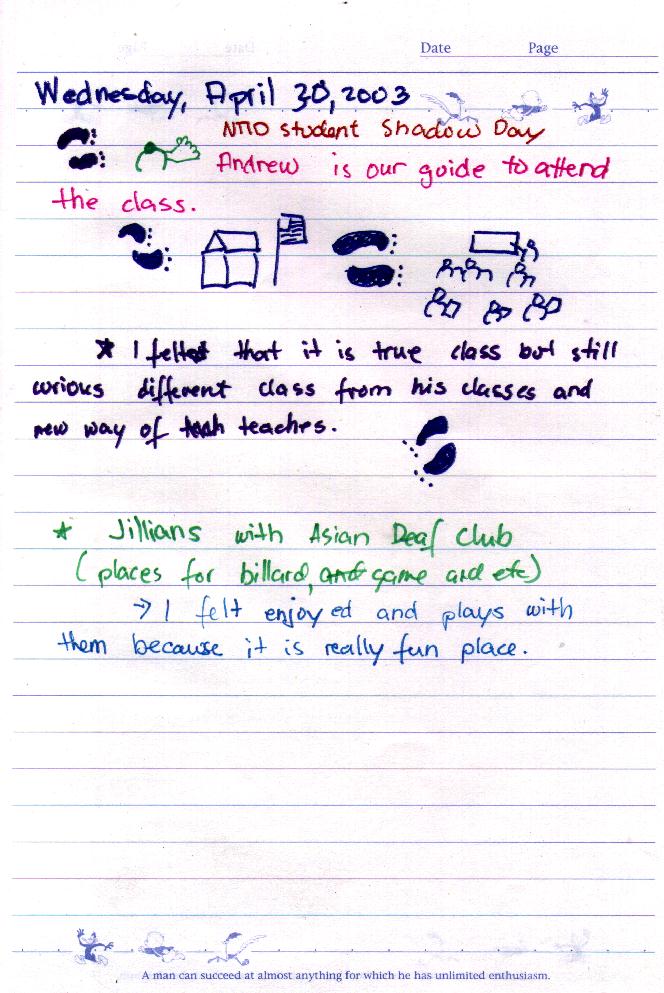 Date Page
Wednesday, April 30, 2003
NTID student Shadow Day
Andrew is our guide to attend
the class.
* I felted that it is true class but still
curious different class from his classes and
new way of teaches.
* Jillians with Asian Deaf Club
(places for billard, and game and etc)
→ I felt enjoyed and plays with
them because it is really fun place.
A man can succeed at almost anything for which he has unlimited enthusiasm.